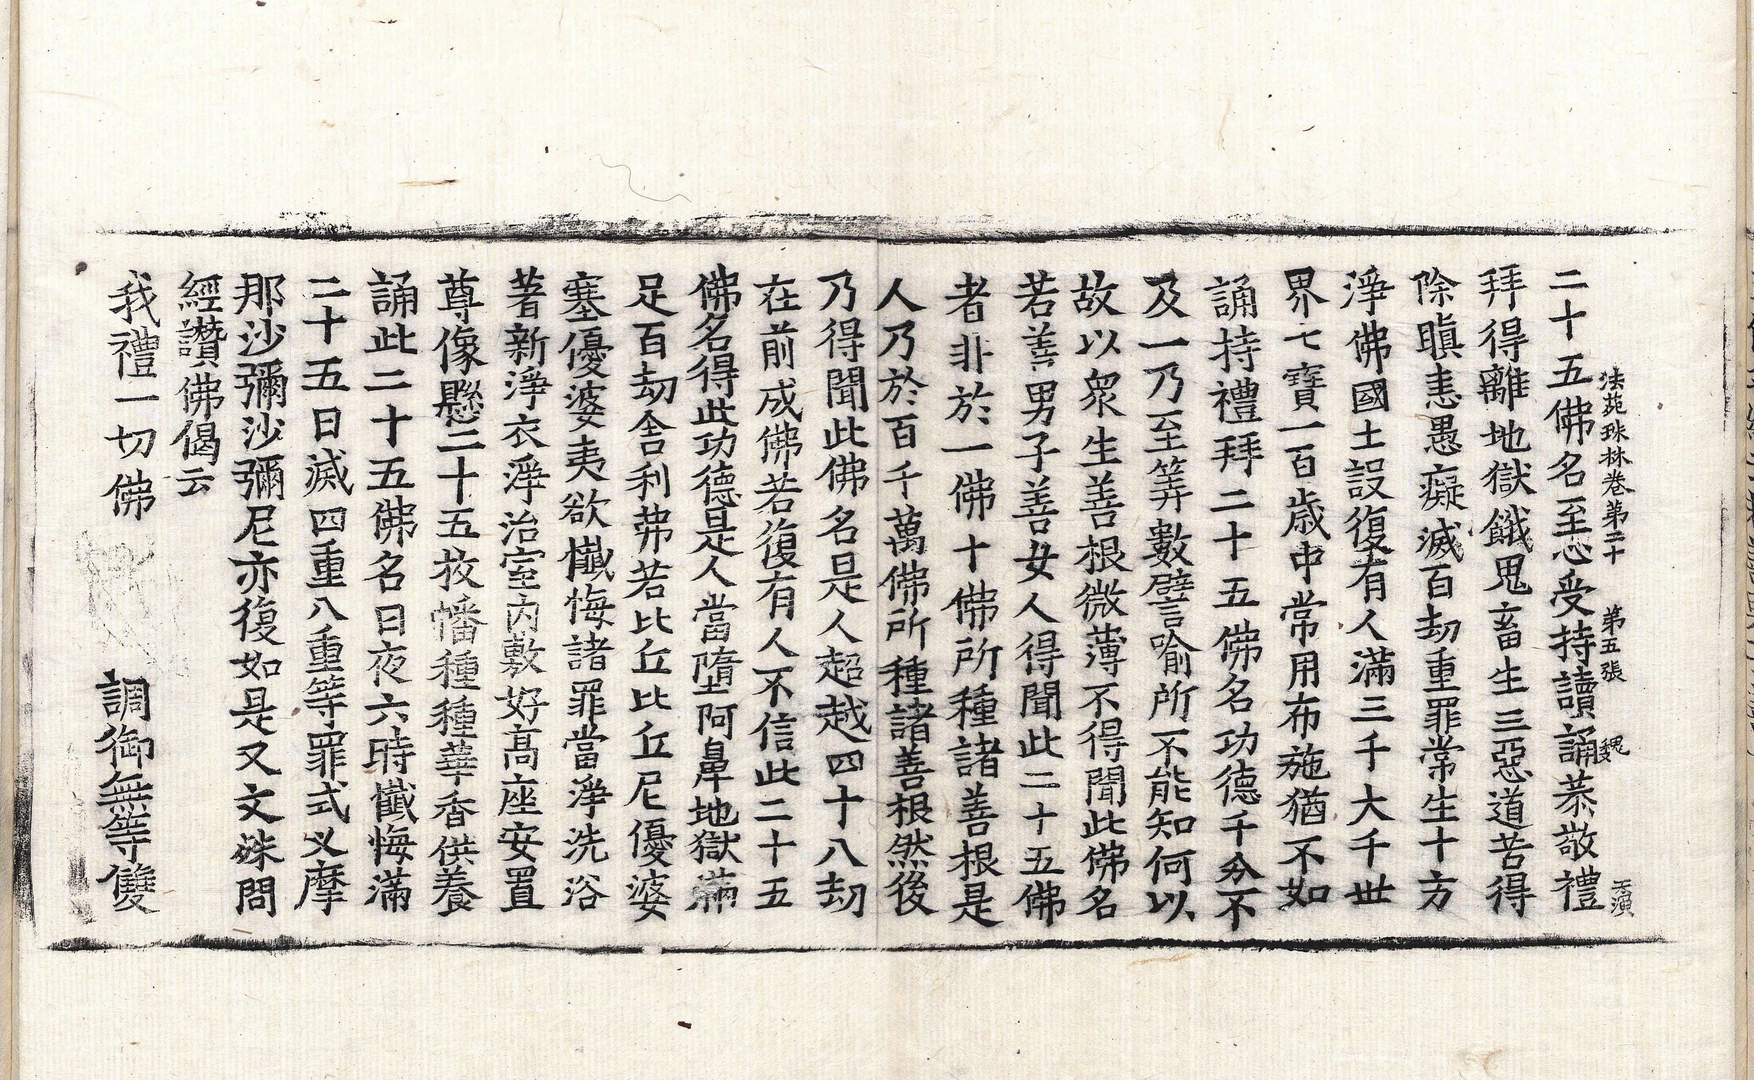 法苑珠林卷第二十 第五張 魏 天演
二十五佛名至心受持讀誦恭敬禮
拜得離地獄餓鬼畜生三惡道苦得
除瞋恚愚癡滅百劫重罪常生十方
淨佛國土設復有人滿三千大千世
界七寶一百歲中常用布施猶不如
誦持禮拜二十五佛名功德千分不
及一乃至筭數譬喻所不能知何以
故以衆生善根微薄不得聞此佛名
若善男子善女人得聞此二十五佛
者非於一佛十佛所種諸善根是
人乃於百千萬佛所種諸善根然後
乃得聞此佛名是人超越四十八劫
在前成佛若復有人不信此二十五
佛名得此功德是人當墮阿鼻地獄滿
足百劫舍利弗若比丘比丘尼優婆
塞優婆夷欲懺悔諸罪當淨洗浴
著新淨衣淨治室內敷好高座安置
尊像懸二十五枚幡種種華香供養
誦此二十五佛名日夜六時懺悔滿
二十五日滅四重八重等罪式叉摩
那沙彌沙彌尼亦復如是又文殊問
經讚佛偈云
我禮一切佛 調御無等雙